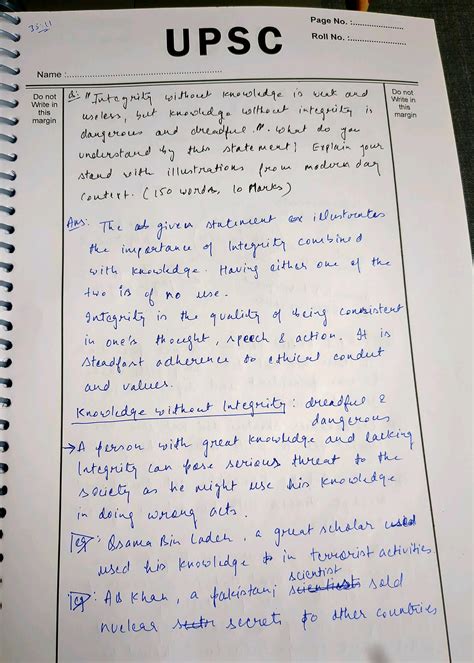 35.11
UPSC
Page No. :
Roll No. :
Name :
Do not
Write in
this
margin
Do not
Write in
this
margin
Q: "Integrity without knowledge is weak and
useless, but knowledge without integrity is
dangerous and dreadful." What do you
understand by this statement? Explain your
stand with illustrations from modern day
context. (150 words, 10 Marks)
Ans: The given statement illustrates
the importance of Integrity combined
with knowledge. Having either one of the
two is of no use.
Integrity is the quality of being consistent
in one's thought, speech & action. It is
steadfast adherence to ethical conduct
and values.
Knowledge without Integrity: dreadful &
dangerous
→ A person with great knowledge and lacking
Integrity can pose serious threat to the
society as he might use his knowledge
in doing wrong acts.
eg: Osama Bin Laden, a great scholar used
used his knowledge in terrorist activities
eg: AQ Khan, a pakistani scientist sold
nuclear secrets to other countries